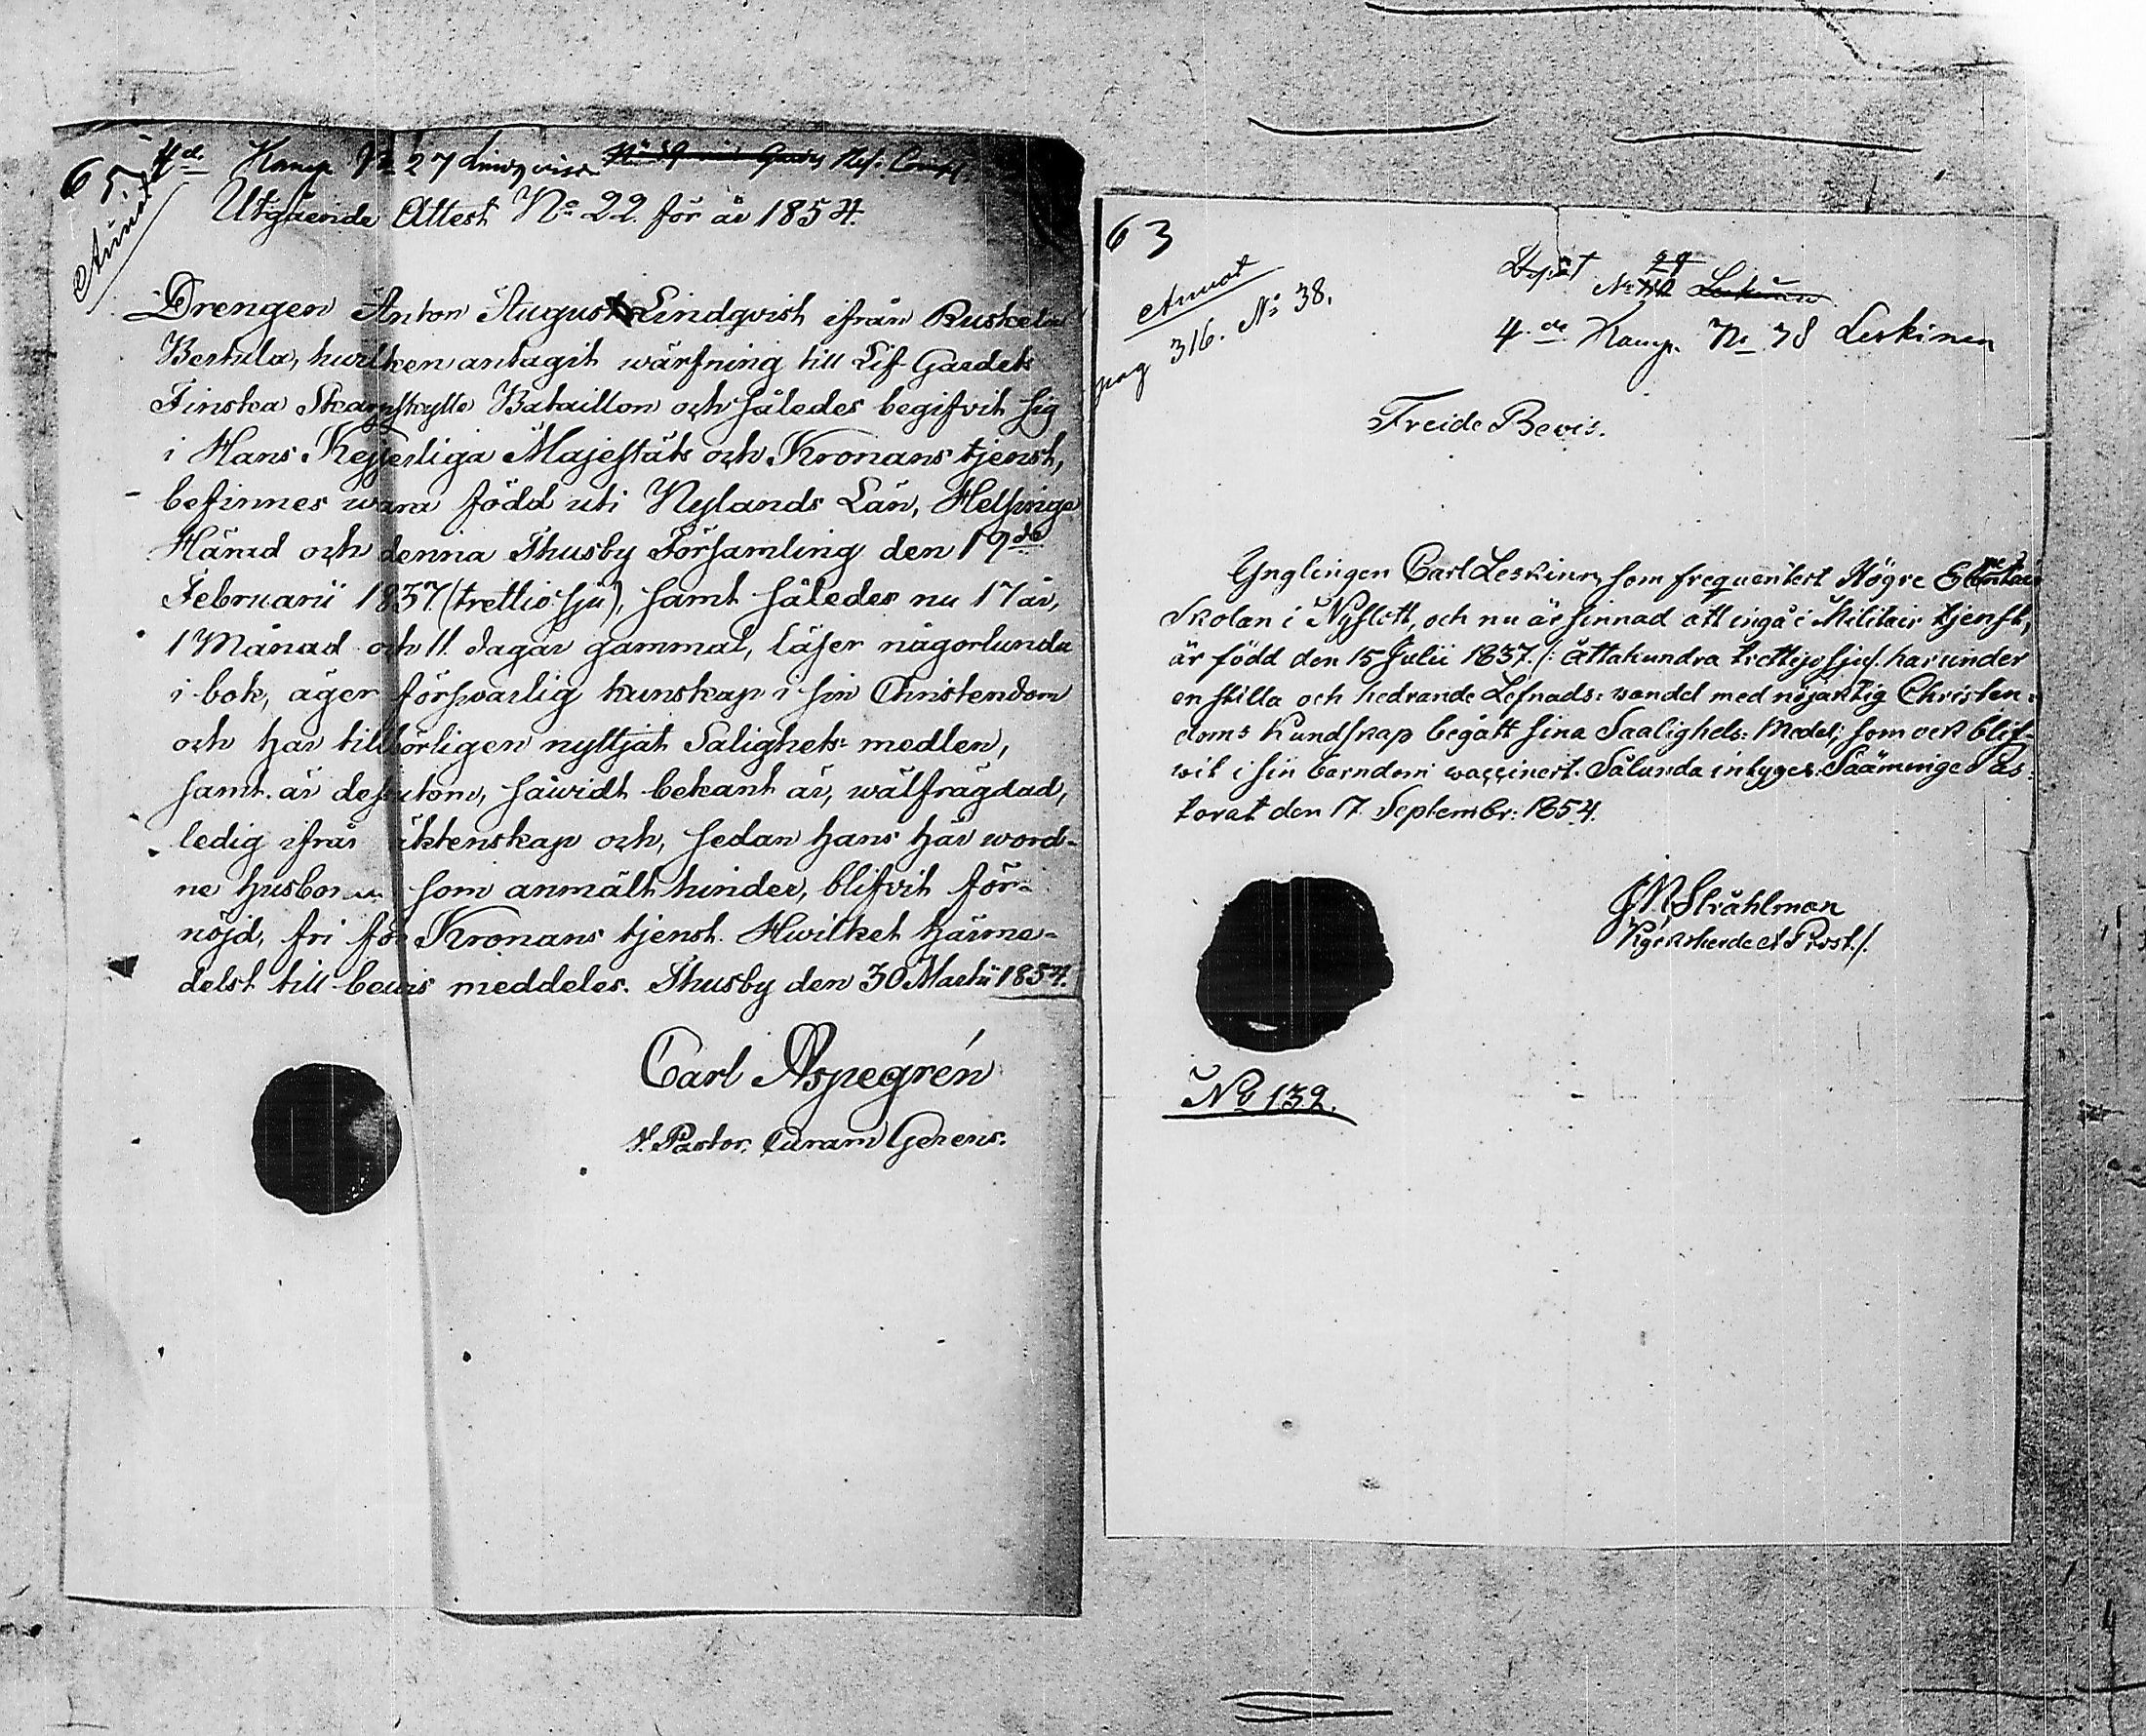 65.
4de Komp. No 27 Lindqvist
Annot
Utgående Attest No 22 för år 1854.
Drengen Anton August Lindqvist ifrån Ruskela
Bertula, hwilken antagit wärfning till Lif Gardets
Finska Skarpskytte Bataillon och således begifvit sig
i Hans Kejserliga Majestäts och Kronans tjenst,
befinnes wara född uti Nylands Län, Helsinge
Härad och denna Thusby Församling den 19de
Februarii 1837 (trettio sju), samt således nu 17 år,
1 Månad och 11 dagar gammal, läser någorlunda
i bok, äger förswarlig kunskap i sin Christendom
och har tillbörligen nyttjat Salighets-medlen,
samt är dessutom, såvidt bekant är, wälfrägdad,
ledig ifrån äktenskap och, sedan hans här word-
ne husbonde som anmält hinder, blifvit för-
nöjd, fri för Kronans tjenst. Hwilket härme-
delst till bewis meddeles. Thusby den 30 Martii 1854.
Carl Aspegrén
V. Pastor, Curam Gerens.
63
Annot
pag 316. No 38.
Depot No 29 Leskinen
4de Komp. No 38 Leskinen
Freide Bevis.
Ynglingen Carl Leskinen, som frequentert Högre Elementair
Skolan i Nyslott, och nu är sinnad att ingå i Militair tjenst,
är född den 15 Julii 1837 /: Åttahundra trettijosju/. har under
en stilla och hedrande Lefnads: wandel med nöjaktig Christen:
doms Kundskap begått sina Saalighets: Medel; som ock blif-
wit i sin barndom waccinert. Sålunda intyges. Sääminge Pas:
torat den 17 Septembr: 1854.
J M Stråhlman
Kyrkoherde et Prost./.
No 132.